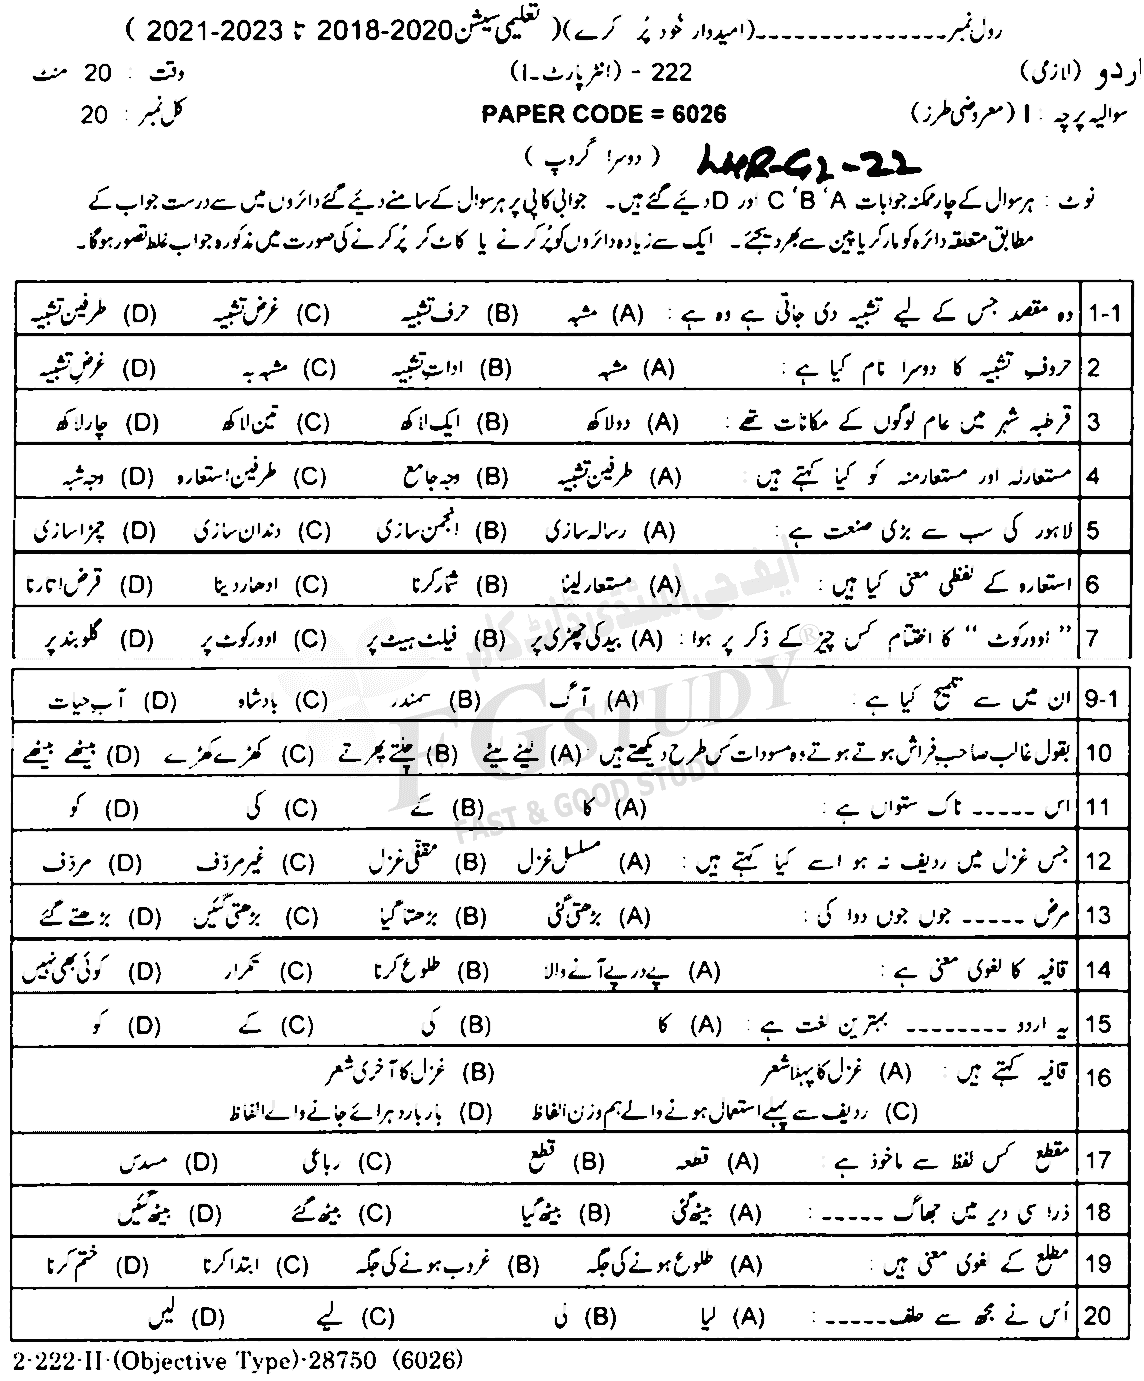 رول نمبر ـــــــــــــــ (امیدوار خود پُر کرے) ( تعلیمی سیشن 2018-2020 تا 2021-2023 )
اردو (لازمی) 222 - (انٹر پارٹ - I) وقت : 20 منٹ
سوالیہ پرچہ : I (معروضی طرز) PAPER CODE = 6026 کل نمبر : 20
LHR-G2-22 ( دوسرا گروپ )
نوٹ : ہر سوال کے چار ممکنہ جوابات A ' B ' C اور D دیئے گئے ہیں۔ جوابی کاپی پر ہر سوال کے سامنے دیئے گئے دائروں میں سے درست جواب کے
مطابق متعلقہ دائرہ کو مارکر یا پین سے بھر دیجئے۔ ایک سے زیادہ دائروں کو پُر کرنے یا کاٹ کر پُر کرنے کی صورت میں مذکورہ جواب غلط تصور ہوگا۔
1-1 وہ مقصد جس کے لیے تشبیہ دی جاتی ہے وہ ہے : (A) مشبہ (B) حرف تشبیہ (C) غرض تشبیہ (D) طرفین تشبیہ
2 حروفِ تشبیہ کا دوسرا نام کیا ہے : (A) مشبہ (B) اداتِ تشبیہ (C) مشبہ بہ (D) غرضِ تشبیہ
3 قرطبہ شہر میں عام لوگوں کے مکانات تھے : (A) دو لاکھ (B) ایک لاکھ (C) تین لاکھ (D) چار لاکھ
4 مستعارلہ اور مستعارمنہ کو کیا کہتے ہیں : (A) طرفین تشبیہ (B) وجہ جامع (C) طرفین استعارہ (D) وجہ شبہ
5 لاہور کی سب سے بڑی صنعت ہے : (A) رسالہ سازی (B) انجمن سازی (C) دندان سازی (D) چمڑا سازی
6 استعارہ کے لفظی معنی کیا ہیں : (A) مستعار لینا (B) شمار کرنا (C) ادھار دینا (D) قرض اتارنا
7 " اوورکوٹ " کا اختتام کس چیز کے ذکر پر ہوا : (A) بید کی چھڑی پر (B) فیلٹ ہیٹ پر (C) اوورکوٹ پر (D) گلوبند پر
9-1 ان میں سے تلمیح کیا ہے : (A) آگ (B) سمندر (C) بادشاہ (D) آب حیات
10 بقول غالب صاحب فراش ہوتے ہوئے وہ مسودات کس طرح دیکھتے ہیں : (A) لیٹے لیٹے (B) چلتے پھرتے (C) کھڑے کھڑے (D) بیٹھے بیٹھے
11 اس ـــــ ناک ستواں ہے : (A) کا (B) کے (C) کی (D) کو
12 جس غزل میں ردیف نہ ہو اسے کیا کہتے ہیں : (A) مسلسل غزل (B) مقفٰی غزل (C) غیر مردّف (D) مردّف
13 مرض ـــــ جوں جوں دوا کی : (A) بڑھتی گئی (B) بڑھتا گیا (C) بڑھتی گئیں (D) بڑھتے گئے
14 قافیہ کا لغوی معنی ہے : (A) پے درپے آنے والا (B) طلوع کرنا (C) تکرار (D) کوئی بھی نہیں
15 یہ اردو ــــــــ بہترین لغت ہے : (A) کا (B) کی (C) کے (D) کو
16 قافیہ کہتے ہیں : (A) غزل کا پہلا شعر (B) غزل کا آخری شعر
(C) ردیف سے پہلے استعمال ہونے والے ہم وزن الفاظ (D) بار بار دہرائے جانے والے الفاظ
17 مقطع کس لفظ سے ماخوذ ہے : (A) قطعہ (B) قطع (C) رباعی (D) مسدس
18 ذرا سی دیر میں جھاگ ـــــ : (A) بیٹھ گئی (B) بیٹھ گیا (C) بیٹھ گئے (D) بیٹھ گئیں
19 مطلع کے لغوی معنی ہیں : (A) طلوع ہونے کی جگہ (B) غروب ہونے کی جگہ (C) ابتدا کرنا (D) ختم کرنا
20 اُس نے مجھ سے حلف ـــــ : (A) لیا (B) لی (C) لیے (D) لیں
2-222-II-(Objective Type)-28750 (6026)
ایف جی اسٹڈی ڈاٹ کام
FG STUDY®
FAST & GOOD STUDY